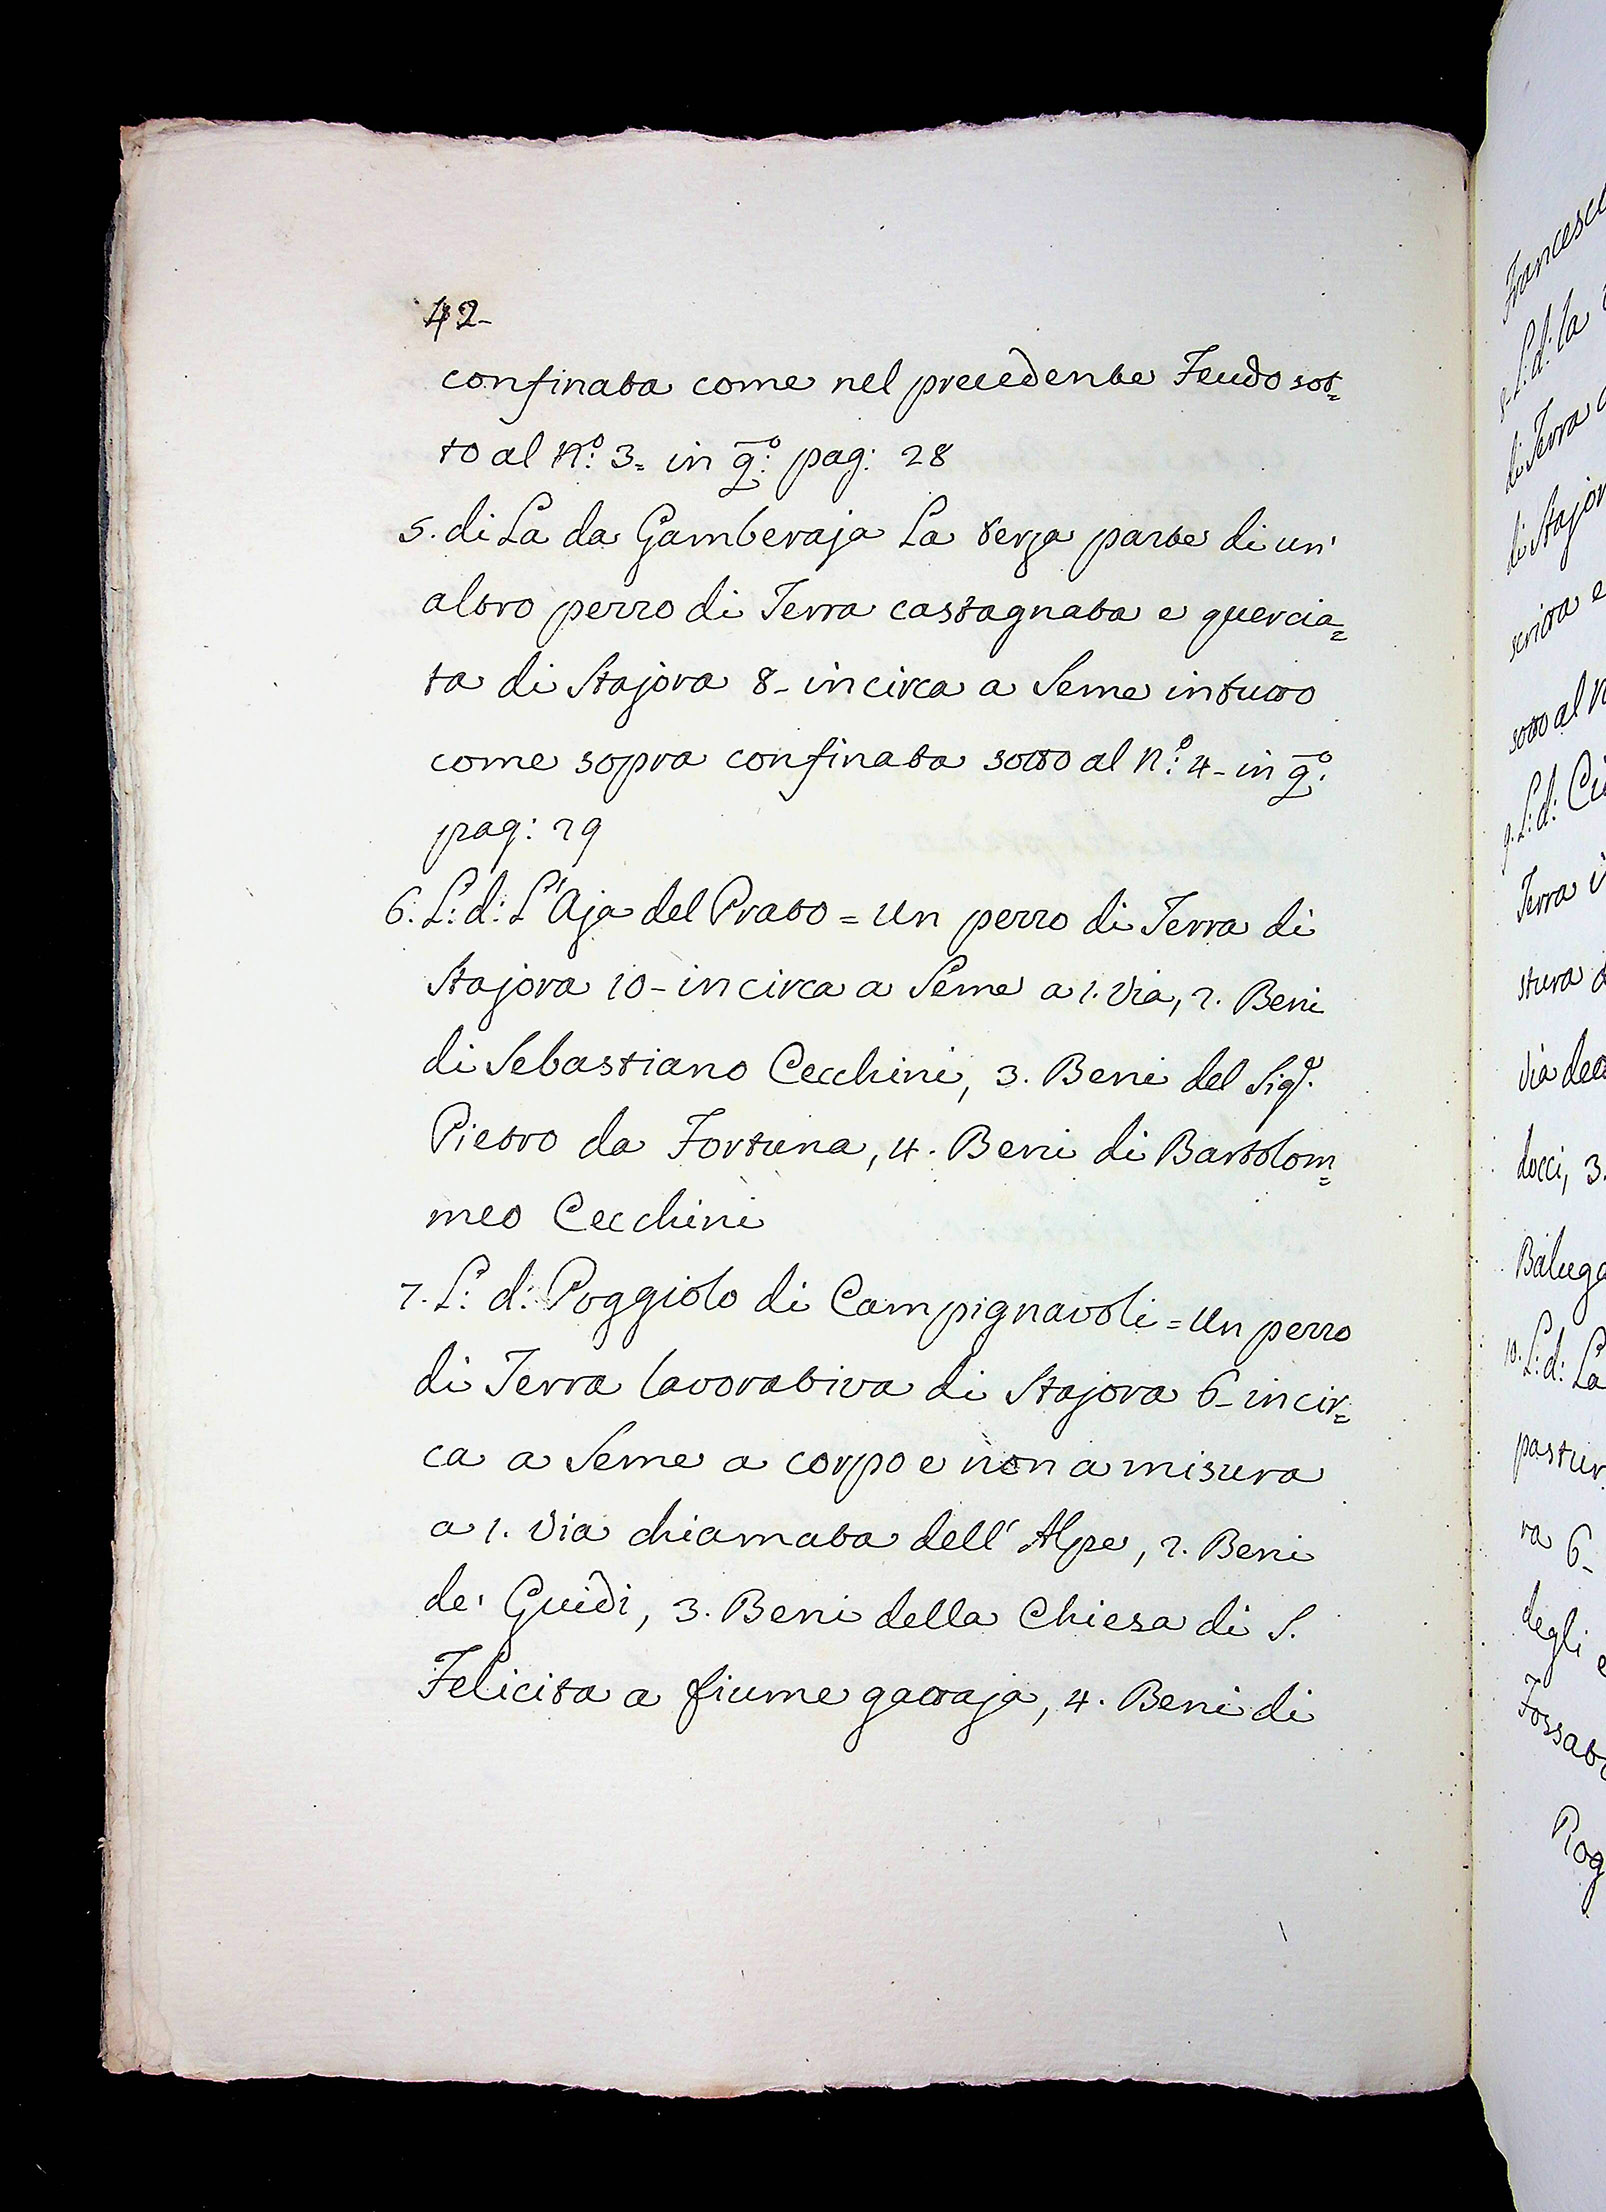 42-
confinata come nel precedente Feudo sot=
to al N.º 3= in q.º pag: 28
5. di La da Gamberaja La terza parte di un'
altro pezzo di Terra castagnata e quercia=
ta di Stajora 8- incirca a Seme intutto
come sopra confinata sotto al N.º 4- in q.º
pag: 29
6. L: d: L'Aja del Prato = Un pezzo di Terra di
Stajora 10- incirca a Seme a 1. Via, 2. Beni
di Sebastiano Cecchini, 3. Beni del Sigr.
Pietro da Fortuna, 4. Beni di Bartolom=
meo Cecchini
7. L: d: Poggiolo di Campignavoli = Un pezzo
di Terra lavorativa di Stajora 6- incir=
ca a Seme a corpo e non a misura
a 1. Via chiamata dell' Alpe, 2. Beni
de' Guidi, 3. Beni della Chiesa di S.
Felicita a fiume gattaja, 4. Beni di
Francesc
8. L: d: la
di Terra
di Stajor
scritta e
sotto al N
9. L: d:
Terra
stura
via
docci, 3.
10. L: d: La
pastur
ra 6-
degli